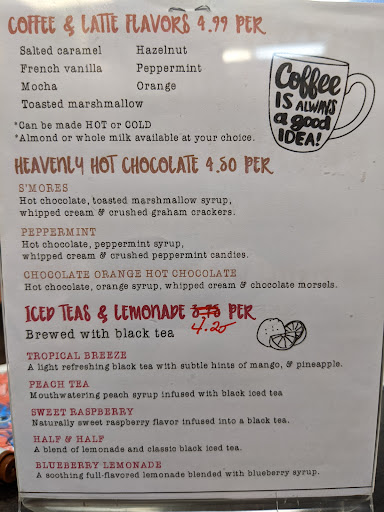 COFFEE & LATTE FLAVORS 4.99 PER
Salted caramel Hazelnut
French vanilla Peppermint
Mocha Orange
Toasted marshmallow
*Can be made HOT or COLD
*Almond or whole milk available at your choice.
Coffee
IS ALWAYS
a good
IDEA!
HEAVENLY HOT CHOCOLATE 4.50 PER
S'MORES
Hot chocolate, toasted marshmallow syrup,
whipped cream & crushed graham crackers.
PEPPERMINT
Hot chocolate, peppermint syrup,
whipped cream & crushed peppermint candies.
CHOCOLATE ORANGE HOT CHOCOLATE
Hot chocolate, orange syrup, whipped cream & chocolate morsels.
ICED TEAS & LEMONADE 3.75 PER
4.20
Brewed with black tea
TROPICAL BREEZE
A light refreshing black tea with subtle hints of mango, & pineapple.
PEACH TEA
Mouthwatering peach syrup infused with black iced tea
SWEET RASPBERRY
Naturally sweet raspberry flavor infused into a black tea.
HALF & HALF
A blend of lemonade and classic black iced tea.
BLUEBERRY LEMONADE
A soothing full-flavored lemonade blended with blueberry syrup.